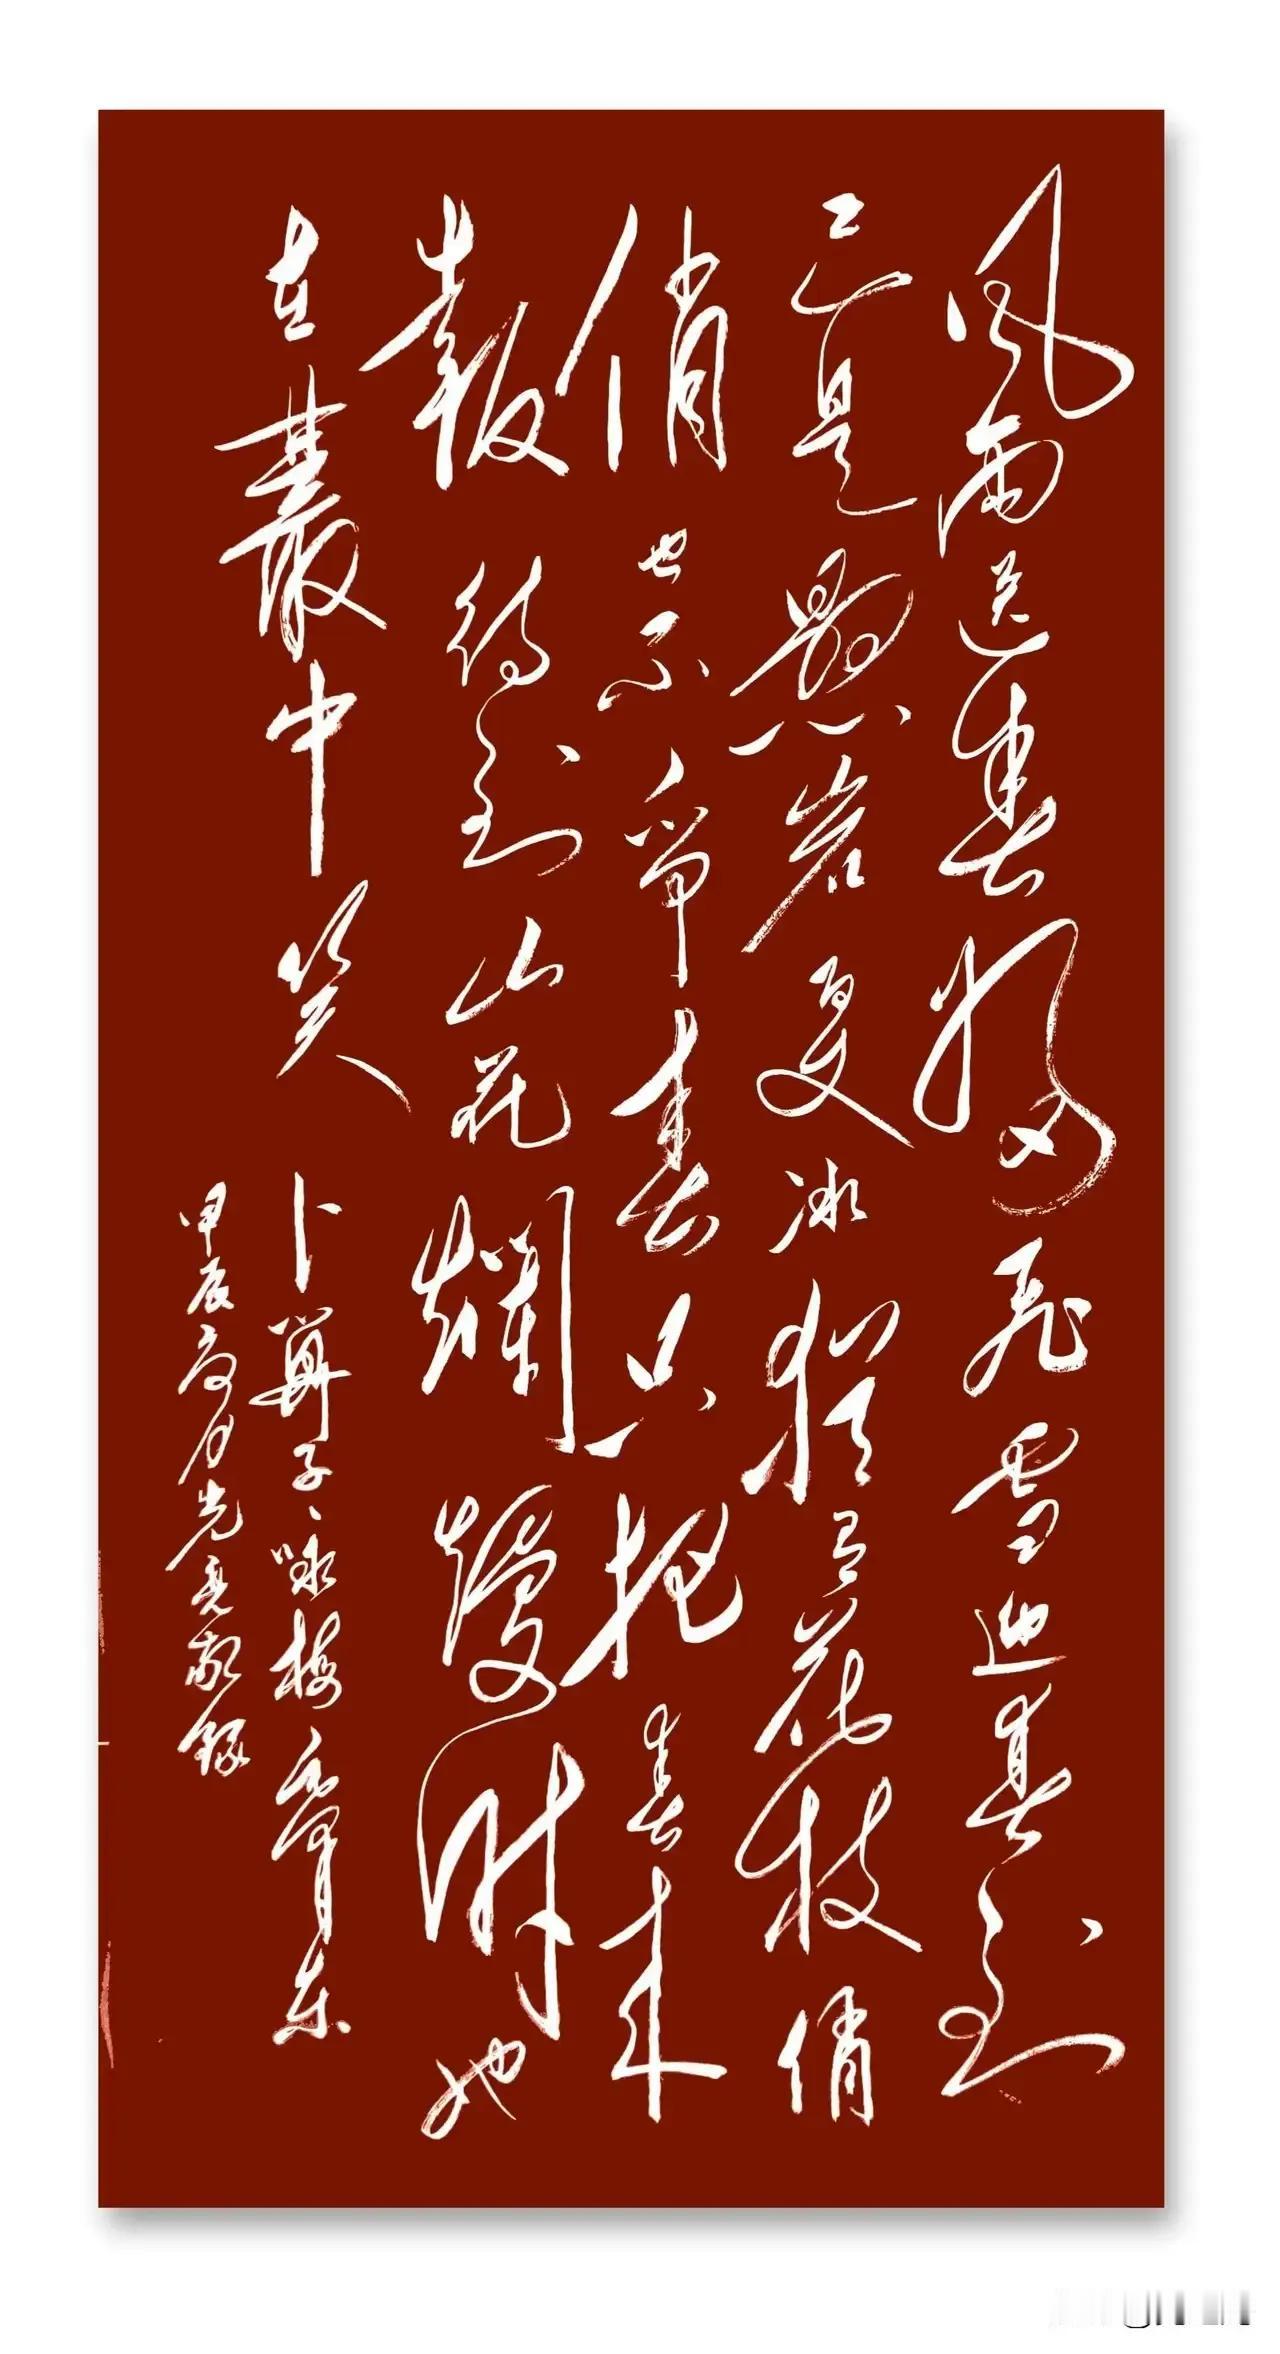 风雨送春归飞雪迎春到
已是懸崖百丈冰猶有花枝俏
俏也不争春只把春来
報待到山花爛熳时她
在叢中笑
卜算子、咏梅 毛泽东
甲辰夏月光亮敬録